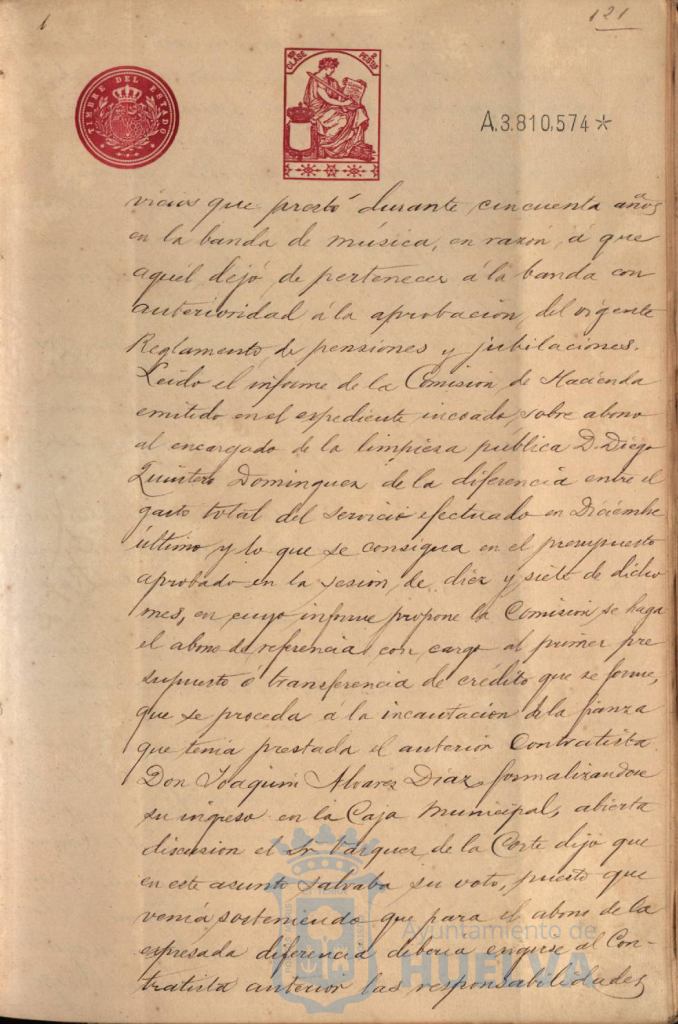 1
121
TIMBRE DEL ESTADO
CLASE
2 PESETAS
A.3.810,574*
vicios que prestó durante cincuenta años
en la banda de música, en razón, á que
aquél dejó de pertenecer á la banda con
anterioridad á la aprobacion del vigente
Reglamento de pensiones y jubilaciones.
Leido el informe de la Comision de Hacienda
emitido en el espediente incoado, sobre abono
al encargado de la limpiesa pública D. Diego
Quintero Dominguez de la diferencia entre el
gasto total del servicio efectuado en Diciembre
último y lo que se consigna en el presupuesto
aprobado en la sesion de diez y siete de dicho
mes, en cuyo informe propone la Comision se haga
el abono de referencia con cargo al primer pre
supuesto ó transferencia de crédito que se forme,
que se proceda á la incautacion de la fianza
que tenia prestada el anterior Contratista
Don Joaquin Alvarez Diaz, formalizandose
su ingreso en la Caja Municipal, abierta
discusion el Sr Vazquez de la Corte dijo que
en este asunto salvaba su voto, puesto que
venia sosteniendo que para el abono de la
espresada diferencia deberia exigirse al Con-
tratista anterior las responsabilidades
Ayuntamiento de
HUELVA